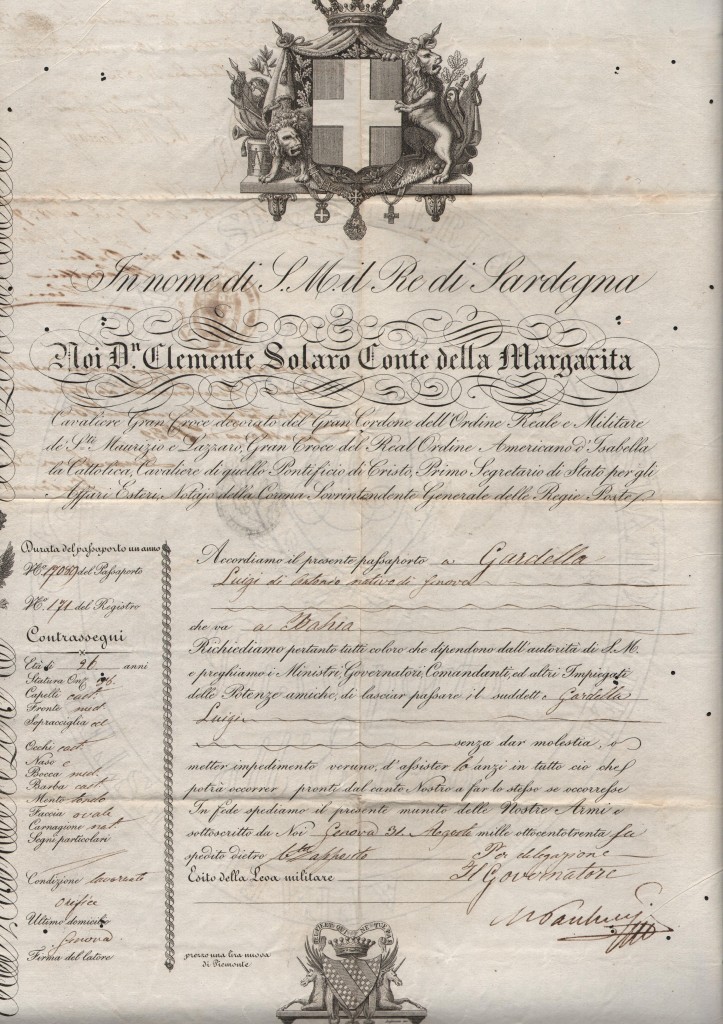 In nome di S. M. il Re di Sardegna
Noi Dⁿ. Clemente Solaro Conte della Margarita
Cavaliere Gran Croce decorato del Gran Cordone dell'Ordine Reale e Militare
de' S.ti Maurizio e Lazzaro, Gran Croce del Real Ordine Americano d'Isabella
la Cattolica, Cavaliere di quello Pontificio di Cristo, Primo Segretario di Stato per gli
Affari Esteri, Notajo della Corona Sovrintendente Generale delle Regie Poste
Durata del passaporto un anno
N.º del Passaporto
N.º 171 del Registro
Contrassegni
Età d 26 anni
Statura On.
Capelli cast.
Fronte med.
Sopracciglia
Occhi cast.
Naso
Bocca med.
Barba cast.
Mento tondo
Faccia ovale
Carnagione nat.
Segni particolari
Condizione lavorante
orefice
Ultimo domicilio
Genova
Firma del latore
Accordiamo il presente passaporto a Gardella
Luigi di nativo di Genova
che va a Bahia
Richiediamo pertanto tutti coloro che dipendono dall'autorità di S. M.
e preghiamo i Ministri, Governatori, Comandanti, ed altri Impiegati
delle Potenze amiche, di lasciar passare il suddetto Gardella
Luigi
senza dar molestia, o
metter impedimento veruno, d'assister lo anzi in tutto ciò che
potrà occorrer pronti dal canto Nostro a far lo stesso se occorresse
In fede spediamo il presente munito delle Nostre Armi e
sottoscritto da Noi Genova 31 Agosto mille ottocentotrenta sei
spedito dietro
Per delegazione
Esito della Leva militare
Il Governatore
prezzo una lira nuova
di Piemonte